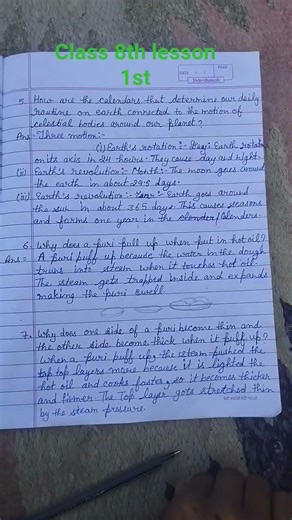 Class 8th lesson
1st
PAGE
DATE
5. How are the calendars that determine our daily
routine on earth connected to the motion of
celestial bodies around our planet?
Ans - Three motion:-
(i) Earth's rotation:- Day: Earth rotation
on its axis in 24 hours. They cause day and night.
(ii) Earth's revolution:- Month: The moon goes around
the earth in about 29.5 days.
(iii) Earth's revolution:- Year: Earth goes around
the sun in about 365 days. This causes seasons
and forms one year in the calenders.
6. Why does a puri puff up when put in hot oil?
Ans = A puri puff up because the water in the dough
truns into steam when it touches hot oil.
The steam gets trapped inside and expands
making the puri swell.
7. Why does one side of a puri become thin and
the other side become thick when it puff up?
When a puri puff up, the steam pushed the
top layers more because it is lighted the
hot oil and cooks faster, so it becomes thicker
and firmer. The Top layer gets stretched thin
by the steam pressure.